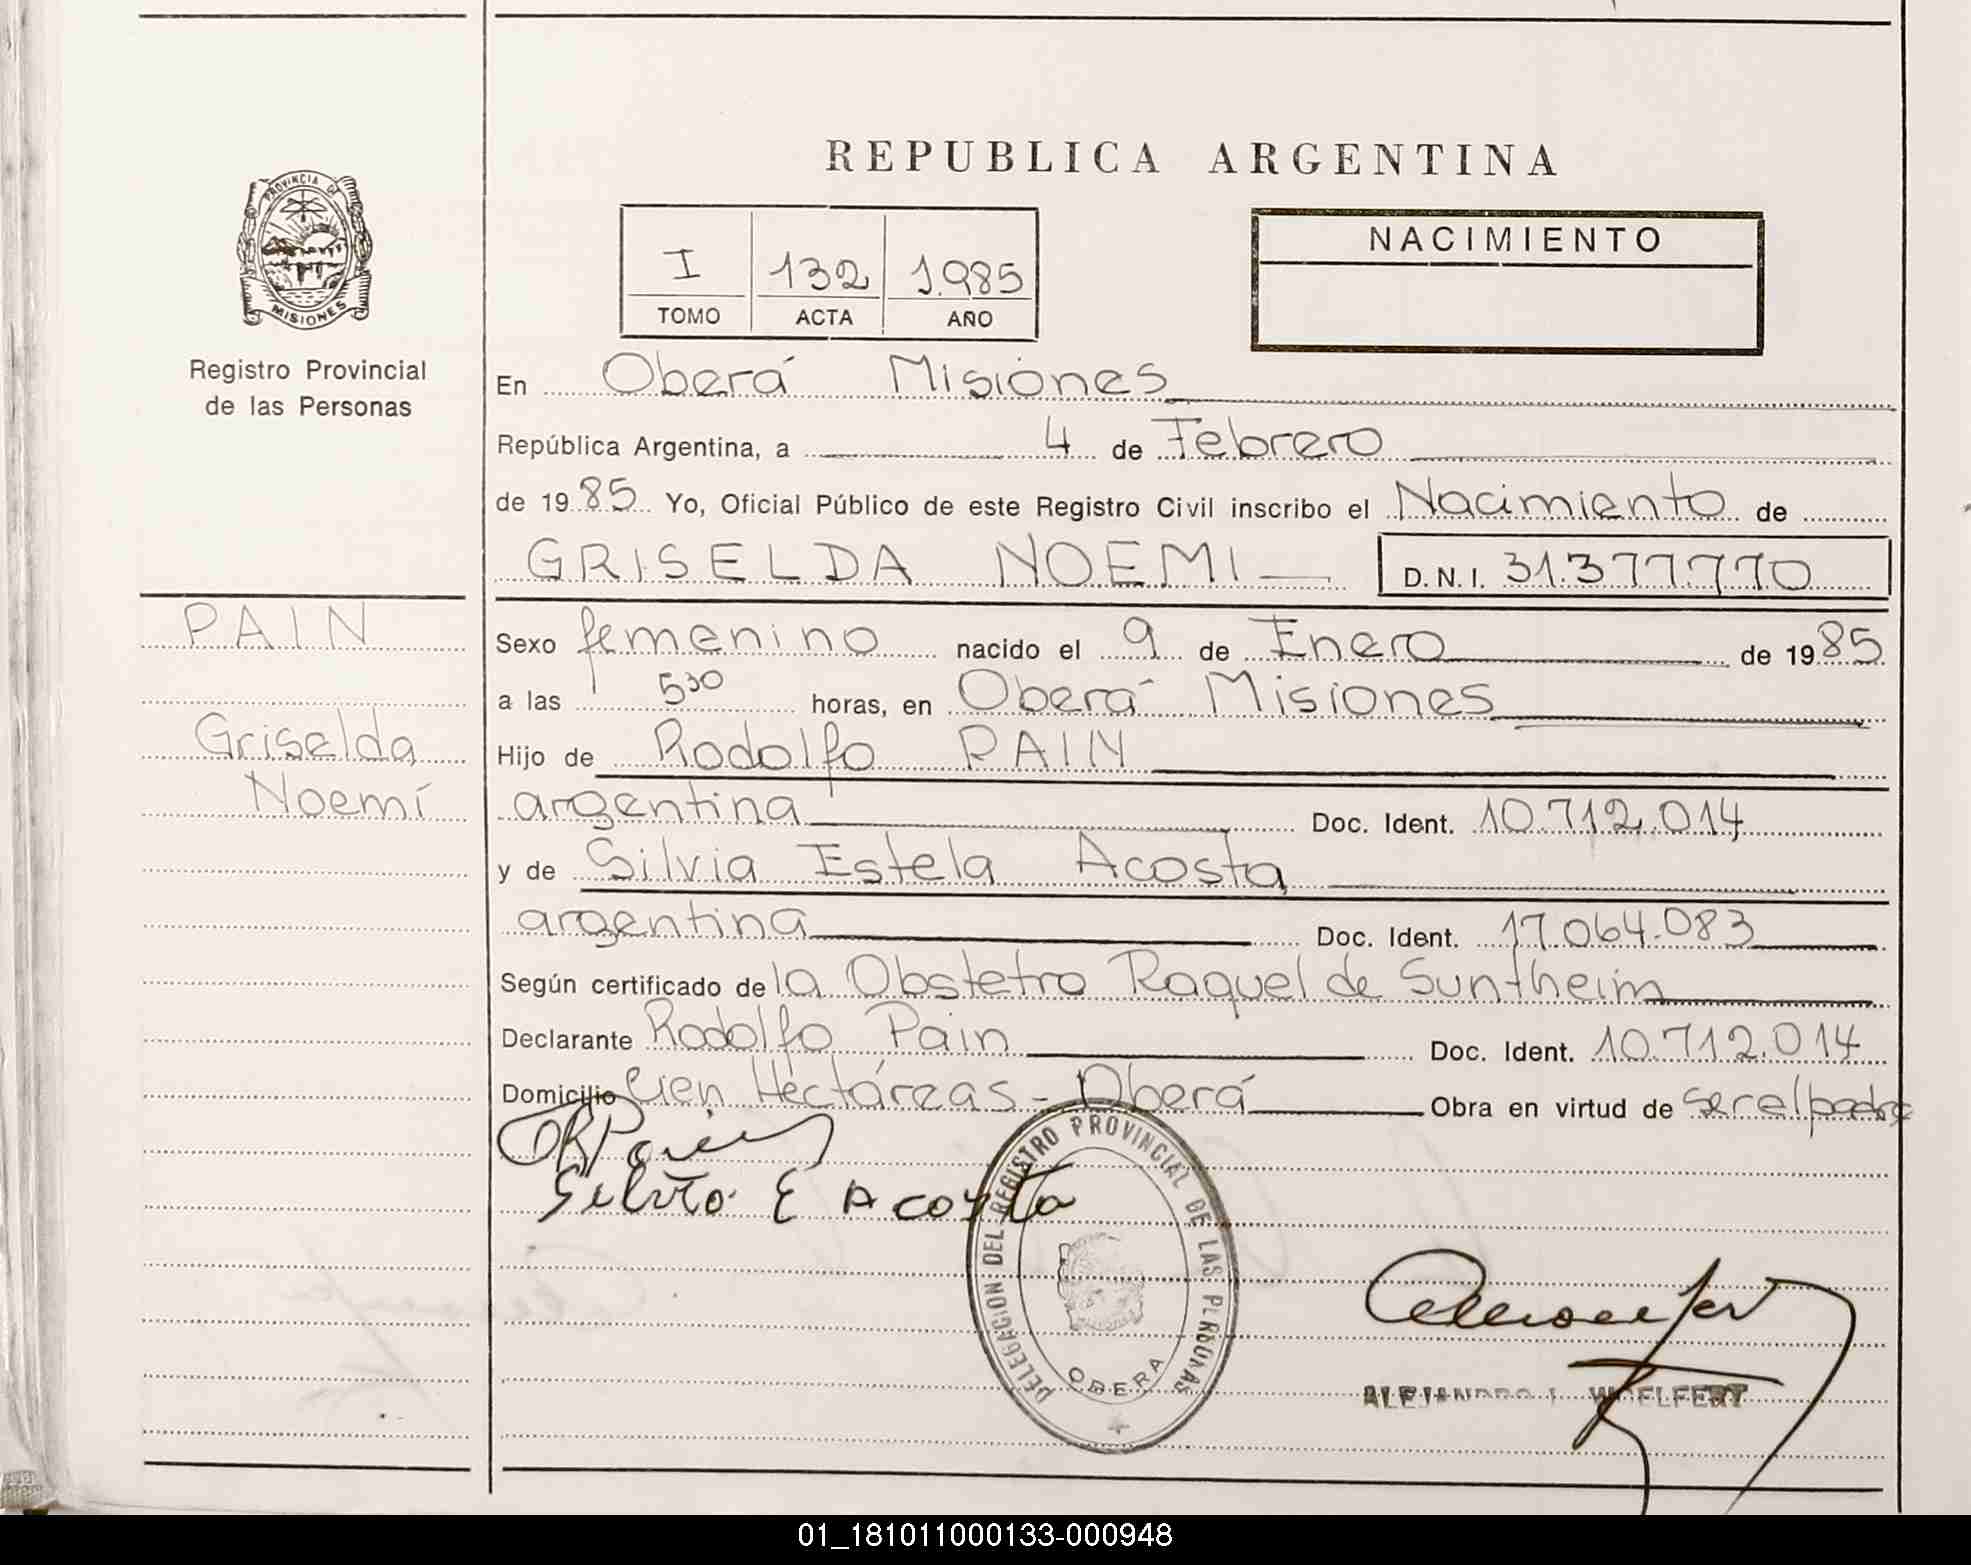 REPUBLICA ARGENTINA
PROVINCIA DE
MISIONES
Registro Provincial
de las Personas
I 132 1.985
TOMO ACTA AÑO
NACIMIENTO
En Oberá Misiones
República Argentina, a 4 de Febrero
de 1985 Yo, Oficial Público de este Registro Civil inscribo el Nacimiento de
GRISELDA NOEMI D.N.I. 31.377.770
PAIN
Griselda
Noemí
Sexo femenino nacido el 9 de Enero de 1985
a las 530 horas, en Oberá Misiones
Hijo de Rodolfo PAIN
argentina Doc. Ident. 10.712.014
y de Silvia Estela Acosta
argentina Doc. Ident. 17.064.083
Según certificado de la Obstetra Raquel de Suntheim
Declarante Rodolfo Pain Doc. Ident. 10.712.014
Domicilio Cien Hectáreas - Oberá Obra en virtud de ser el padre
Silvia E Acosta
DELEGACION DEL REGISTRO PROVINCIAL DE LAS PERSONAS
OBERA
ALEJANDRO L. WOELFERT
01_181011000133-000948